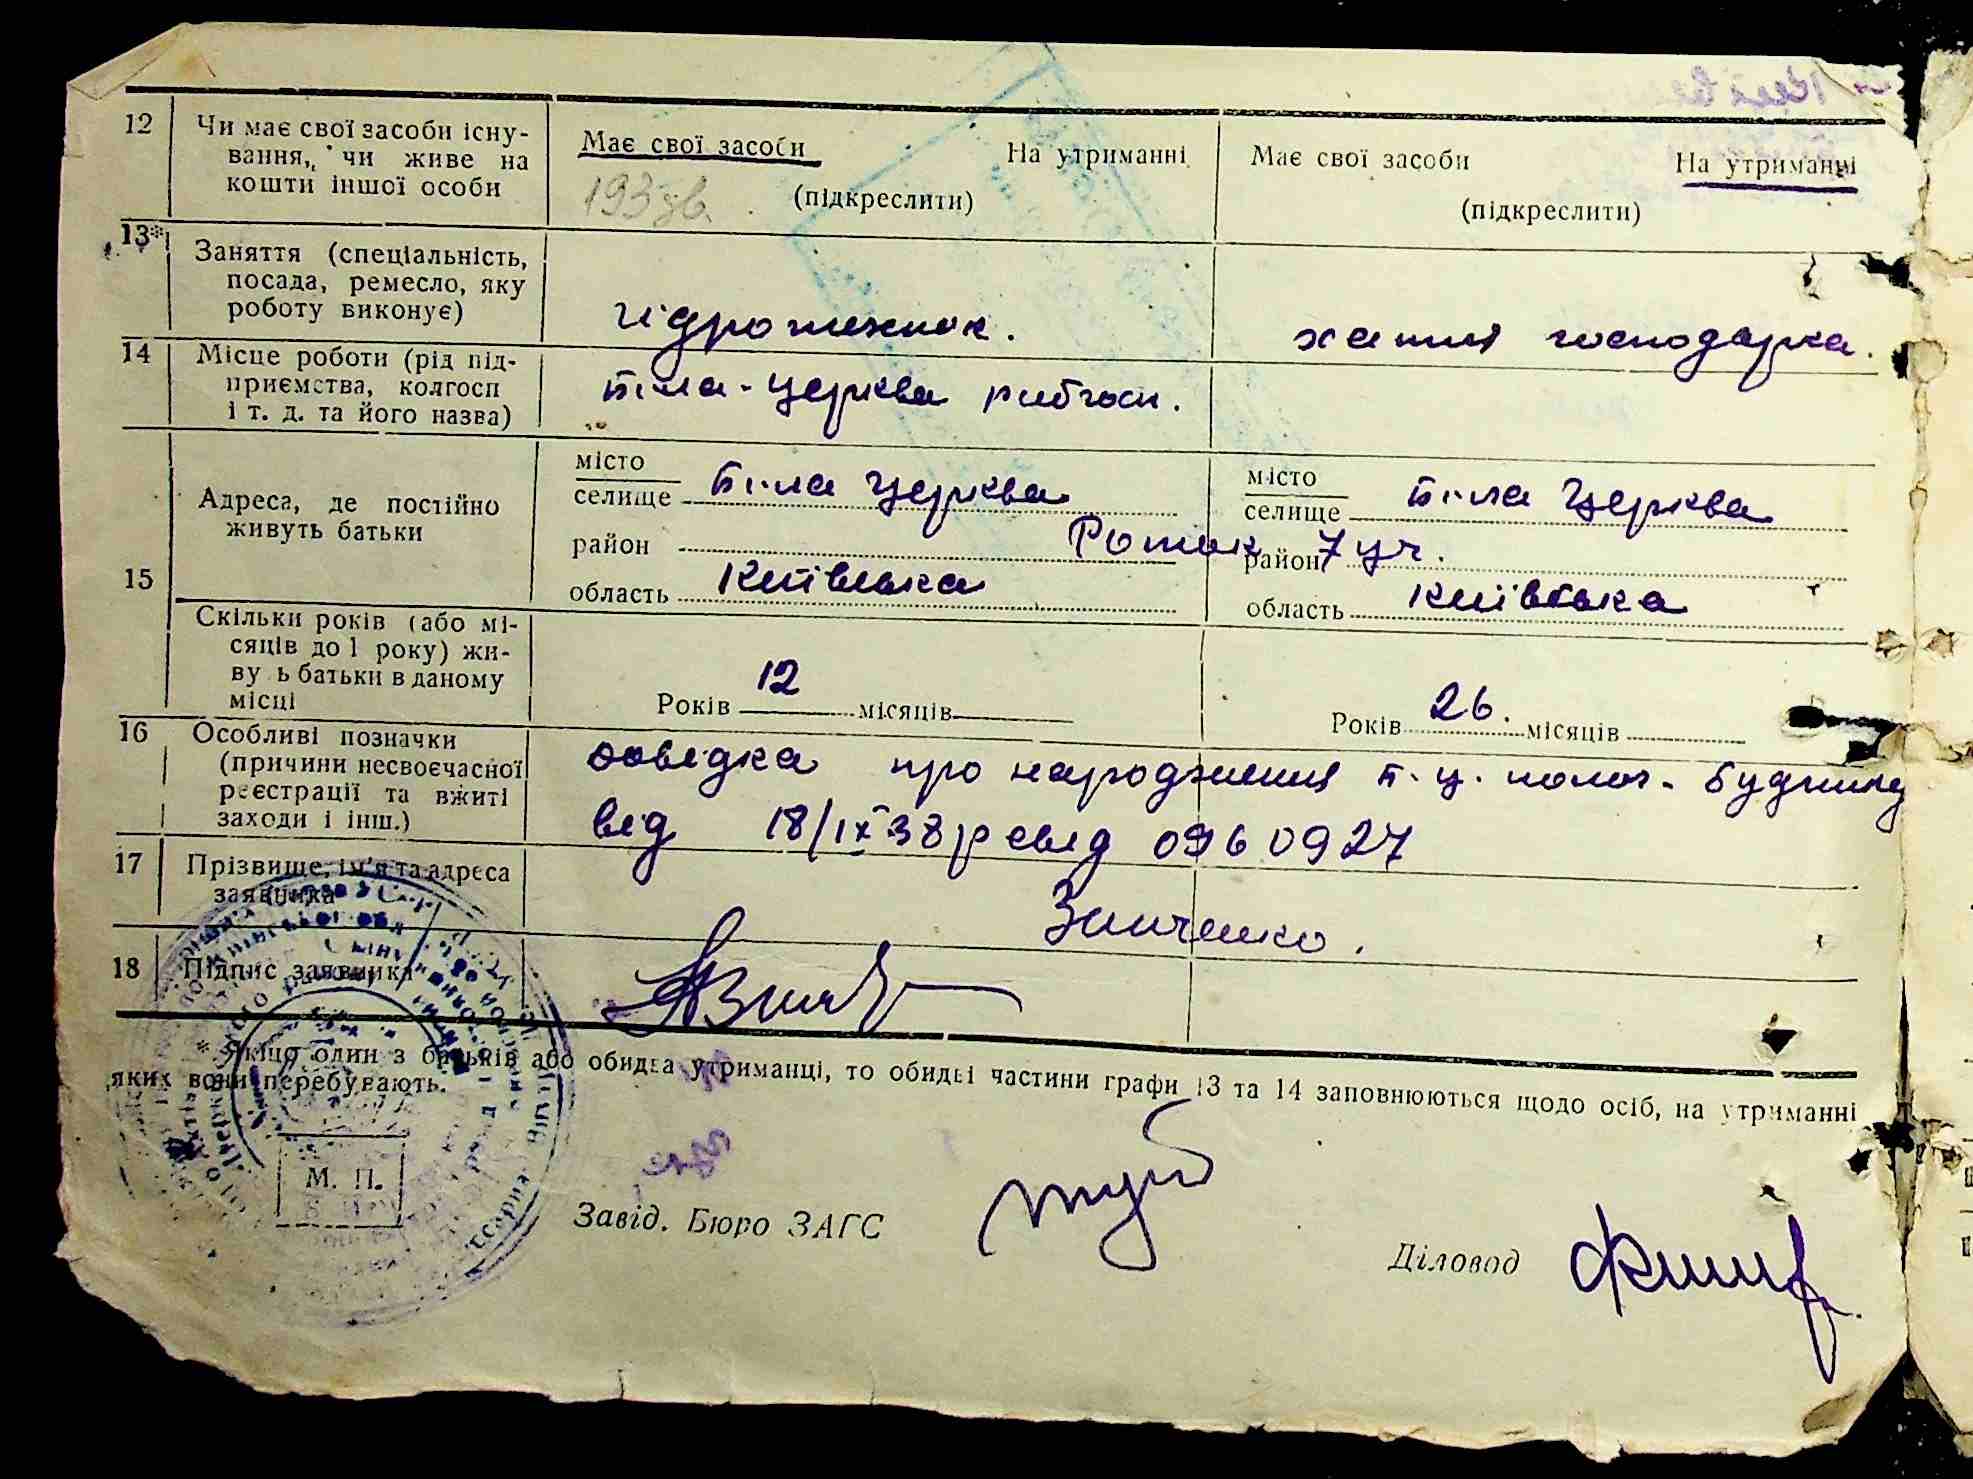 12 Чи має свої засоби існу-
вання, чи живе на
кошти іншої особи
Має свої засоби На утриманні
(підкреслити)
Має свої засоби На утриманні
(підкреслити)
13* Заняття (спеціальність,
посада, ремесло, яку
роботу виконує)
гідротехнік.
хатня господарка.
14 Місце роботи (рід під-
приємства, колгосп
і т. д. та його назва)
Біла-Церква рибгосп.
15 Адреса, де постійно
живуть батьки
місто
селище Біла Церква
район Роток 7 уч.
область Київська
місто
селище Біла Церква
район
область Київська
Скільки років (або мі-
сяців до 1 року) жи-
ву ь батьки в даному
місці
Років 12 місяців
Років 26. місяців
16 Особливі позначки
(причини несвоєчасної
реєстрації та вжиті
заходи і інш.)
довідка про народження Б. Ц. полог. будинку
від 18/IX 38р
0960927
17 Прізвище, ім'я та адреса
заявника
Зинченко.
18 Підпис заявника
* Якщо один з батьків або обидва утриманці, то обидві частини графи 13 та 14 заповнюються щодо осіб, на утриманні
яких вони перебувають.
М. П.
Завід. Бюро ЗАГС
Діловод